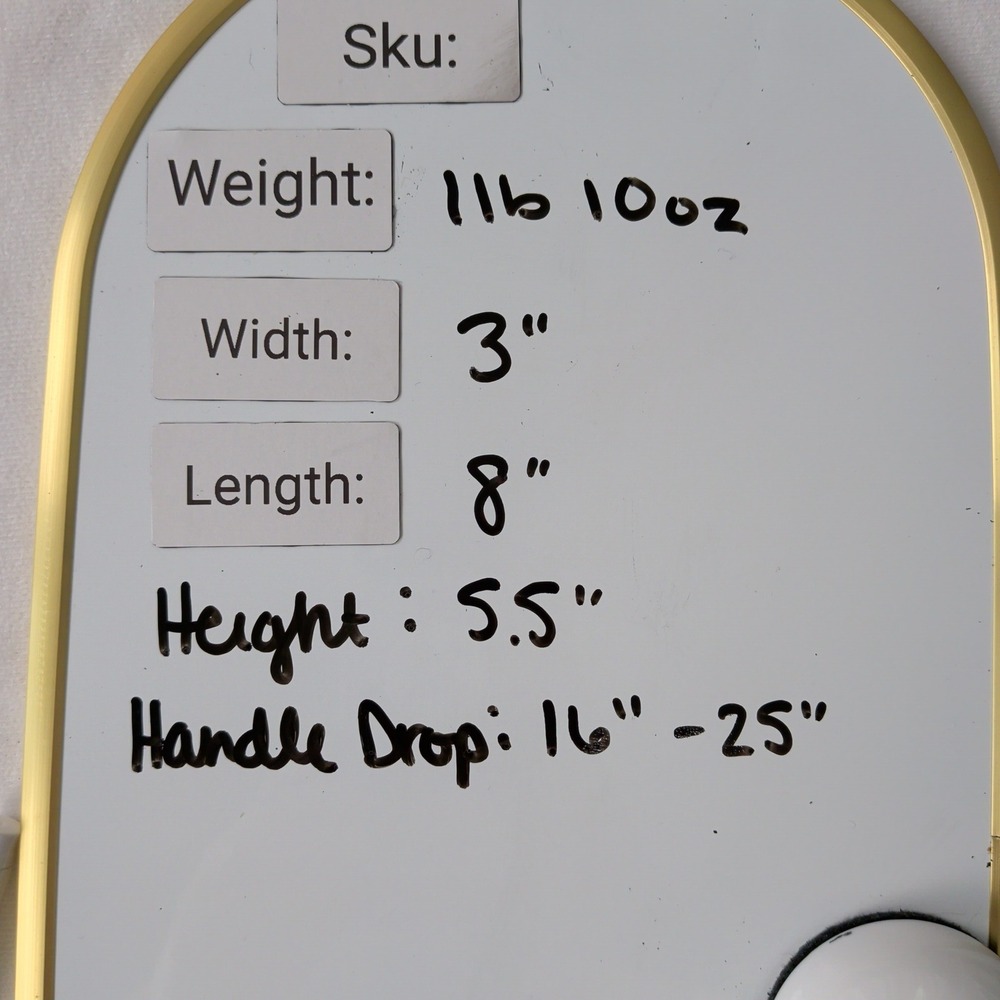 Sku:
Weight: 1lb 10oz
Width: 3"
Length: 8"
Height: 5.5"
Handle Drop: 16" - 25"